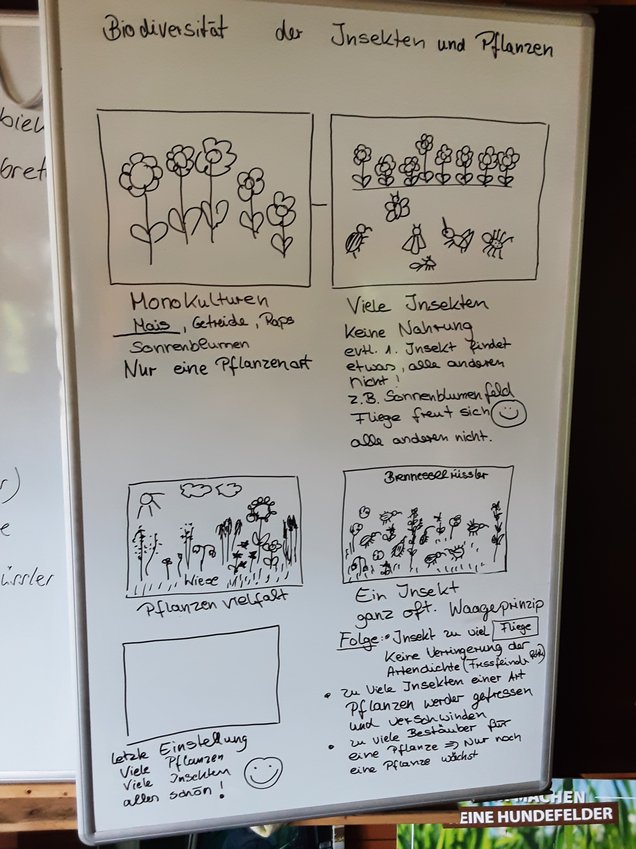 Biodiversität der Insekten und Pflanzen
Monokulturen
Mais, Getreide, Raps
Sonnenblumen
Nur eine Pflanzenart
Viele Insekten
Keine Nahrung
evtl. 1. Insekt findet
etwas, alle anderen
nicht!
z.B. Sonnenblumenfeld
Fliege freut sich
alle anderen nicht.
Wiese
Pflanzenvielfalt
Brennesselrüssler
Ein Insekt
ganz oft. Waageprinzip
Folge: • Insekt zu viel Fliege
Keine Verringerung der
Artendichte (Fressfeinde
• zu viele Insekten einer Art
Pflanzen werden gefressen
und verschwinden
• zu viele Bestäuber für
eine Pflanze => Nur noch
eine Pflanze wächst
letzte Einstellung
Viele Pflanzen
Viele Insekten
alles schön!
üssler
MACHEN
EINE HUNDEFELDER